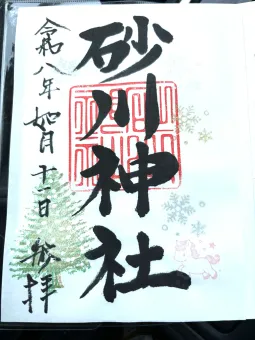 砂川神社
令和八年 如月 十一日 参拝